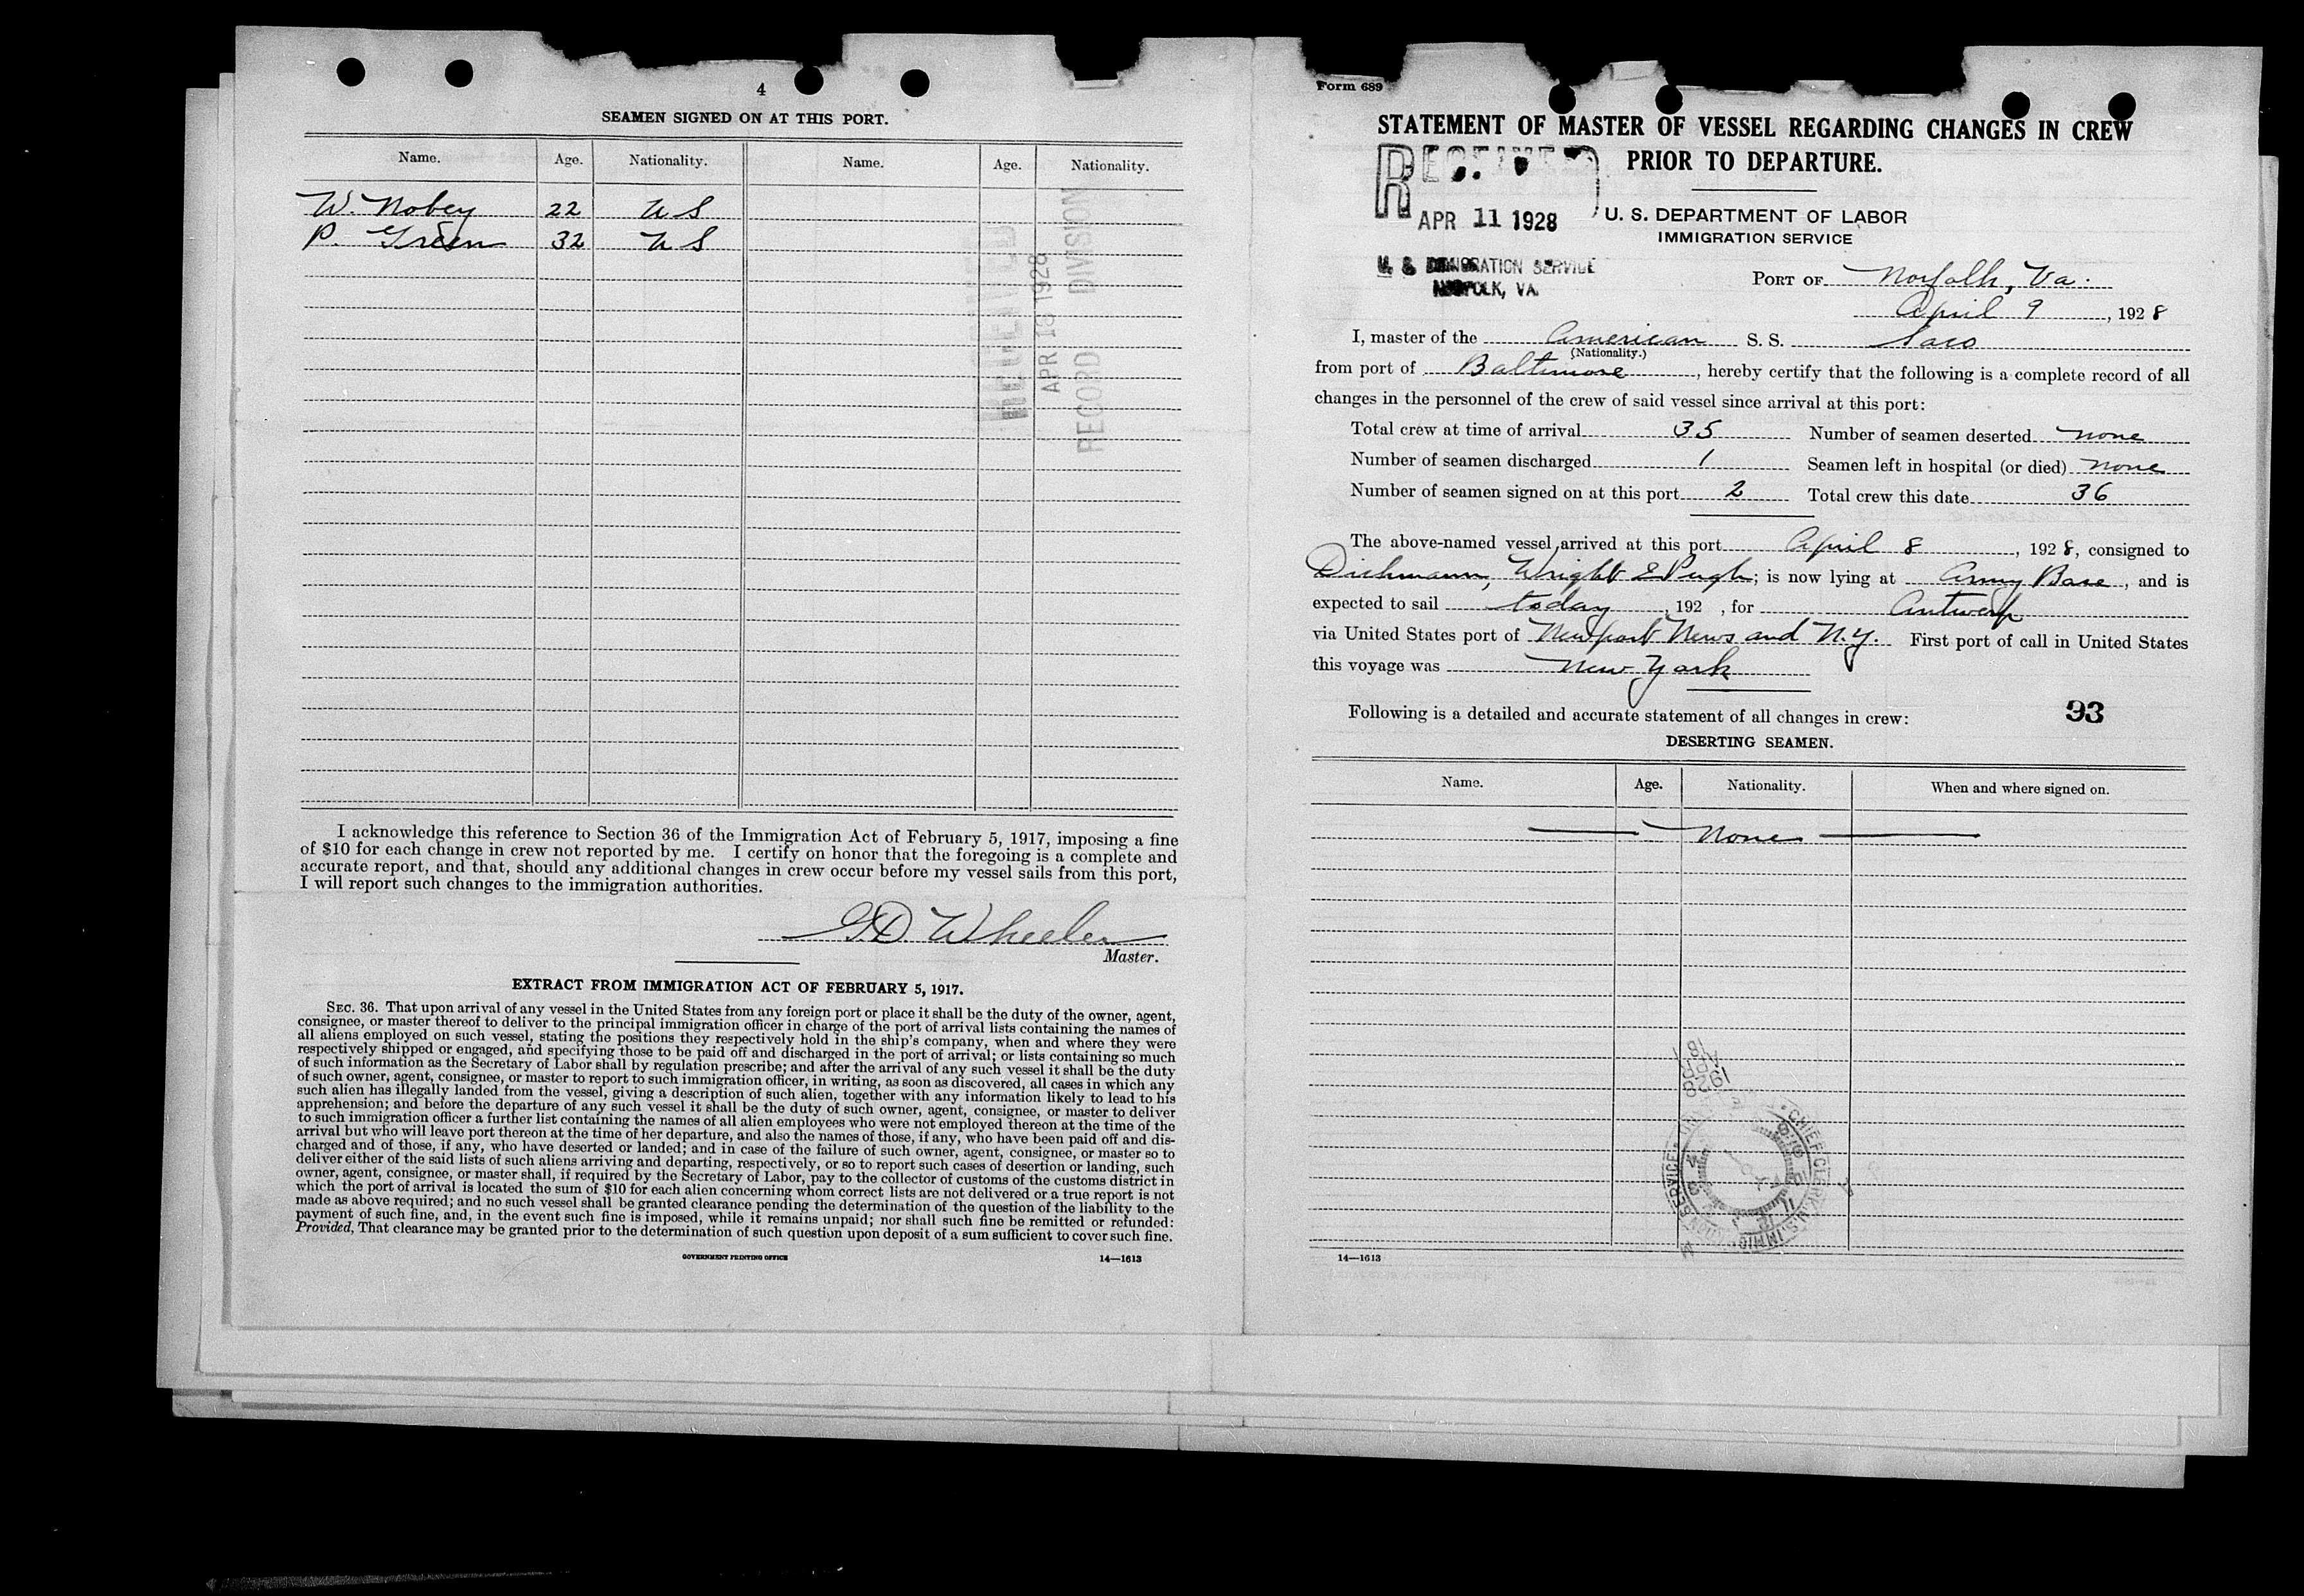 4
SEAMEN SIGNED ON AT THIS PORT.
Name. Age. Nationality. Name. Age. Nationality.
W. Nobey 22 U S
P. Green 32 U S
RECEIVED
APR 18 1928
RECORD DIVISION
I acknowledge this reference to Section 36 of the Immigration Act of February 5, 1917, imposing a fine
of $10 for each change in crew not reported by me. I certify on honor that the foregoing is a complete and
accurate report, and that, should any additional changes in crew occur before my vessel sails from this port,
I will report such changes to the immigration authorities.
G.D. Wheeler
Master.
EXTRACT FROM IMMIGRATION ACT OF FEBRUARY 5, 1917.
SEC. 36. That upon arrival of any vessel in the United States from any foreign port or place it shall be the duty of the owner, agent,
consignee, or master thereof to deliver to the principal immigration officer in charge of the port of arrival lists containing the names of
all aliens employed on such vessel, stating the positions they respectively hold in the ship's company, when and where they were
respectively shipped or engaged, and specifying those to be paid off and discharged in the port of arrival; or lists containing so much
of such information as the Secretary of Labor shall by regulation prescribe; and after the arrival of any such vessel it shall be the duty
of such owner, agent, consignee, or master to report to such immigration officer, in writing, as soon as discovered, all cases in which any
such alien has illegally landed from the vessel, giving a description of such alien, together with any information likely to lead to his
apprehension; and before the departure of any such vessel it shall be the duty of such owner, agent, consignee, or master to deliver
to such immigration officer a further list containing the names of all alien employees who were not employed thereon at the time of the
arrival but who will leave port thereon at the time of her departure, and also the names of those, if any, who have been paid off and dis-
charged and of those, if any, who have deserted or landed; and in case of the failure of such owner, agent, consignee, or master so to
deliver either of the said lists of such aliens arriving and departing, respectively, or so to report such cases of desertion or landing, such
owner, agent, consignee, or master shall, if required by the Secretary of Labor, pay to the collector of customs of the customs district in
which the port of arrival is located the sum of $10 for each alien concerning whom correct lists are not delivered or a true report is not
made as above required; and no such vessel shall be granted clearance pending the determination of the question of the liability to the
payment of such fine, and, in the event such fine is imposed, while it remains unpaid; nor shall such fine be remitted or refunded:
Provided, That clearance may be granted prior to the determination of such question upon deposit of a sum sufficient to cover such fine.
GOVERNMENT PRINTING OFFICE 14—1613
Form 689
STATEMENT OF MASTER OF VESSEL REGARDING CHANGES IN CREW
PRIOR TO DEPARTURE.
RECEIVED
APR 11 1928
U. S. IMMIGRATION SERVICE
NORFOLK, VA.
U. S. DEPARTMENT OF LABOR
IMMIGRATION SERVICE
PORT OF Norfolk, Va.
April 9, 1928
I, master of the American S. S. Saco
(Nationality.)
from port of Baltimore, hereby certify that the following is a complete record of all
changes in the personnel of the crew of said vessel since arrival at this port:
Total crew at time of arrival 35 Number of seamen deserted none
Number of seamen discharged 1 Seamen left in hospital (or died) none
Number of seamen signed on at this port 2 Total crew this date 36
The above-named vessel arrived at this port April 8, 1928, consigned to
Dichmann, Wright & Pugh; is now lying at Army Base, and is
expected to sail today, 192 , for Antwerp
via United States port of Newport News and N.Y. First port of call in United States
this voyage was New York
93
Following is a detailed and accurate statement of all changes in crew:
DESERTING SEAMEN.
Name. Age. Nationality. When and where signed on.
None
1928
APR
18
14—1613